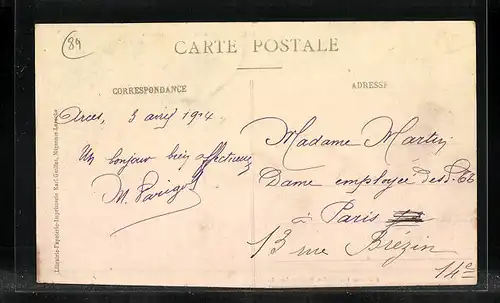 89
CARTE POSTALE
CORRESPONDANCE
ADRESSE
Arces, 3 avril 1914
Un bonjour bien affectueux
M. Parigot
Madame Martin
Dame employée des
à Paris
13 rue Brézin
14e
Librairie-Papeterie-Imprimerie